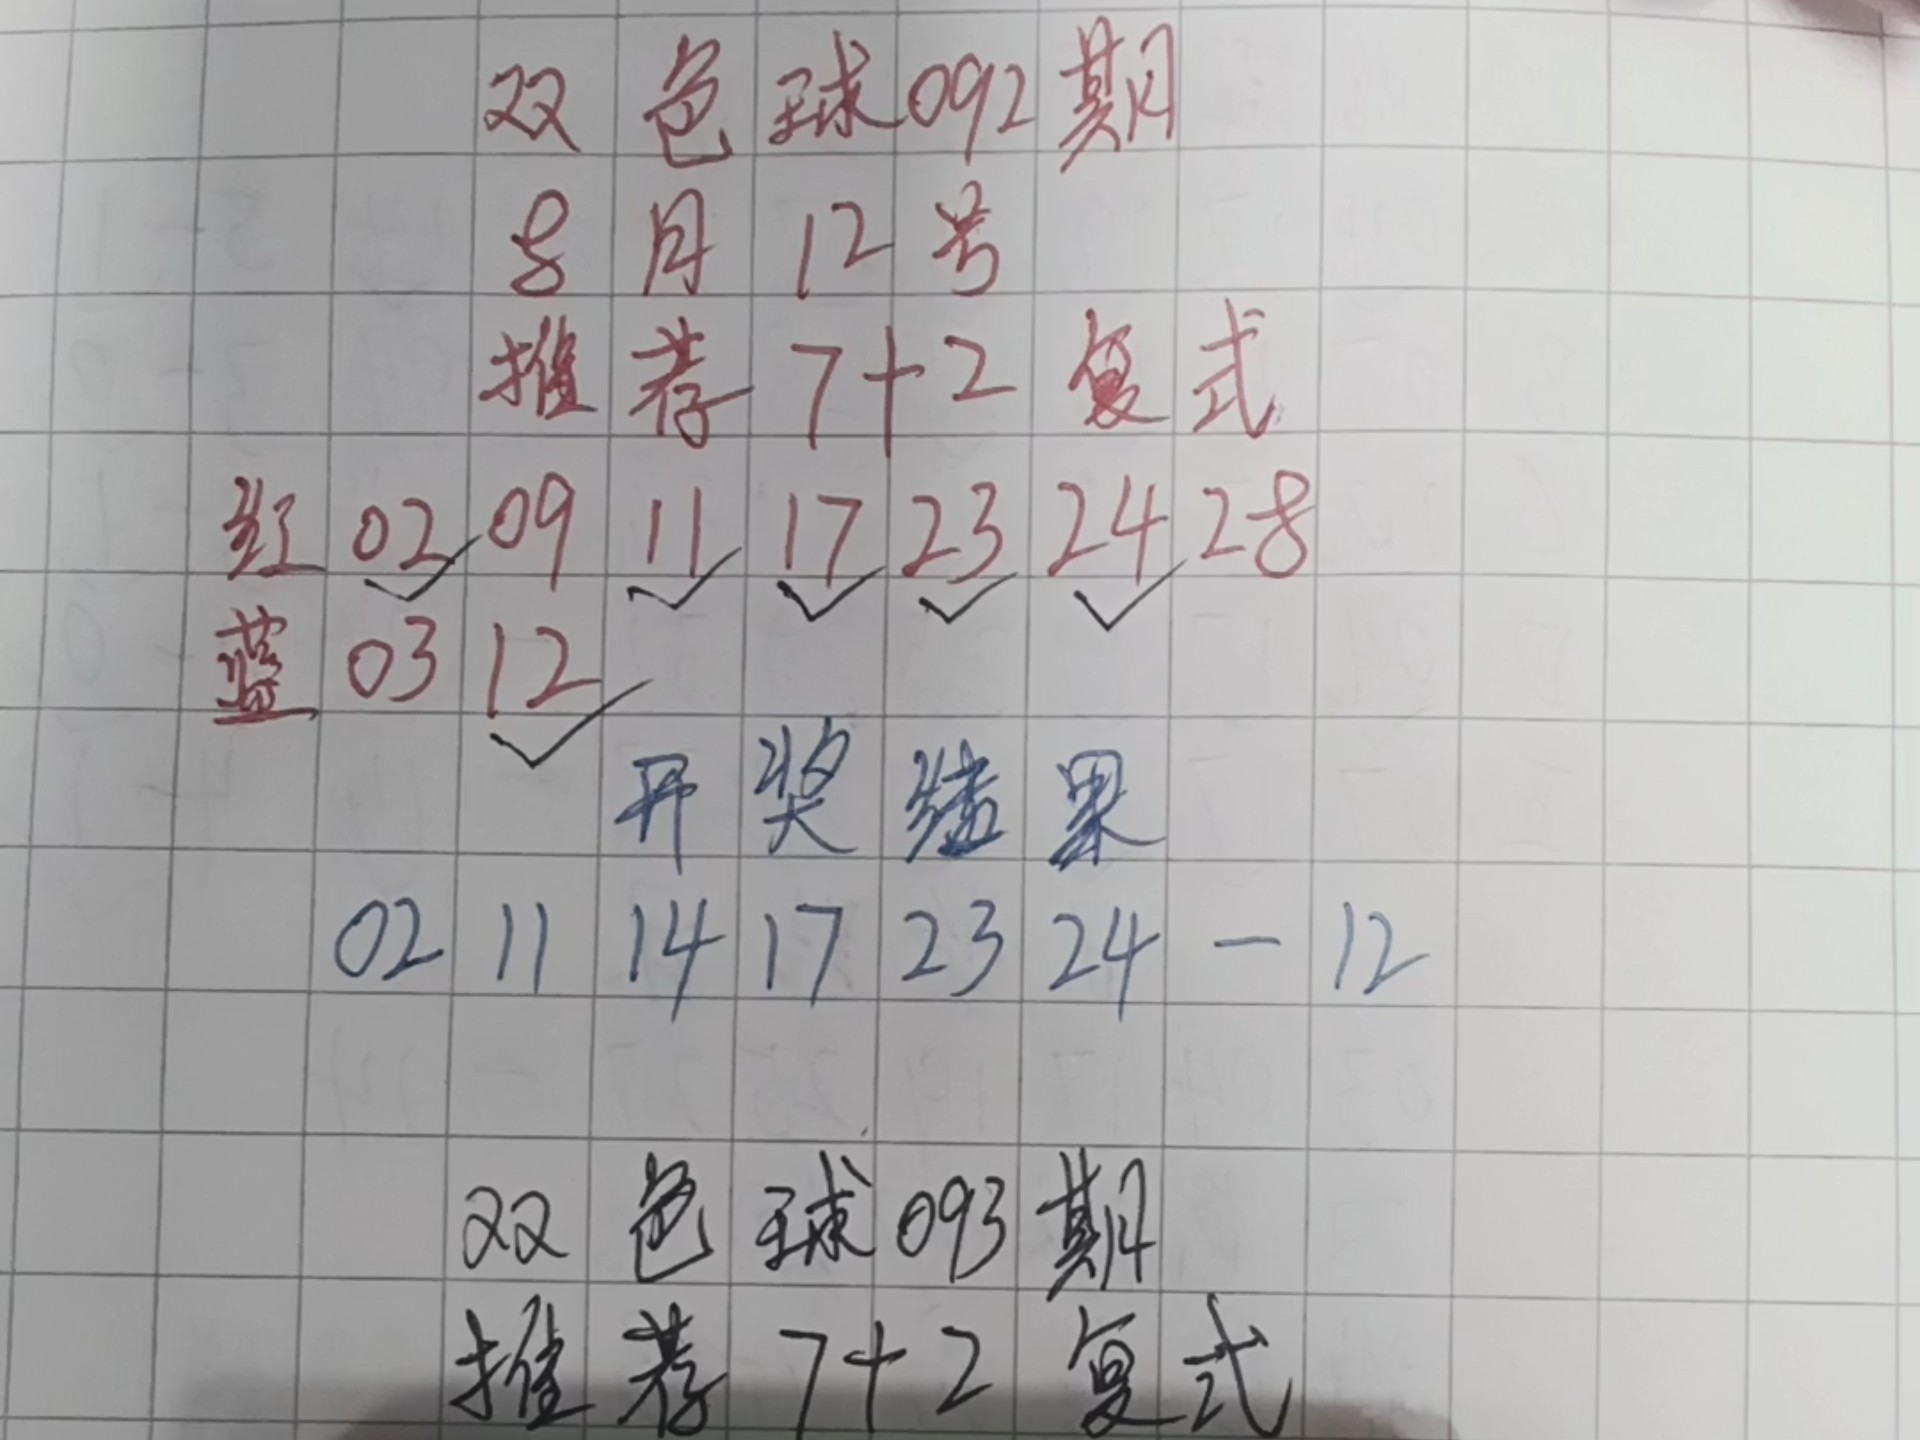 双色球092期
8月12号
推荐7+2复式
红 02 09 11 17 23 24 28
蓝 03 12
开奖结果
02 11 14 17 23 24 — 12
双色球093期
推荐7+2复式